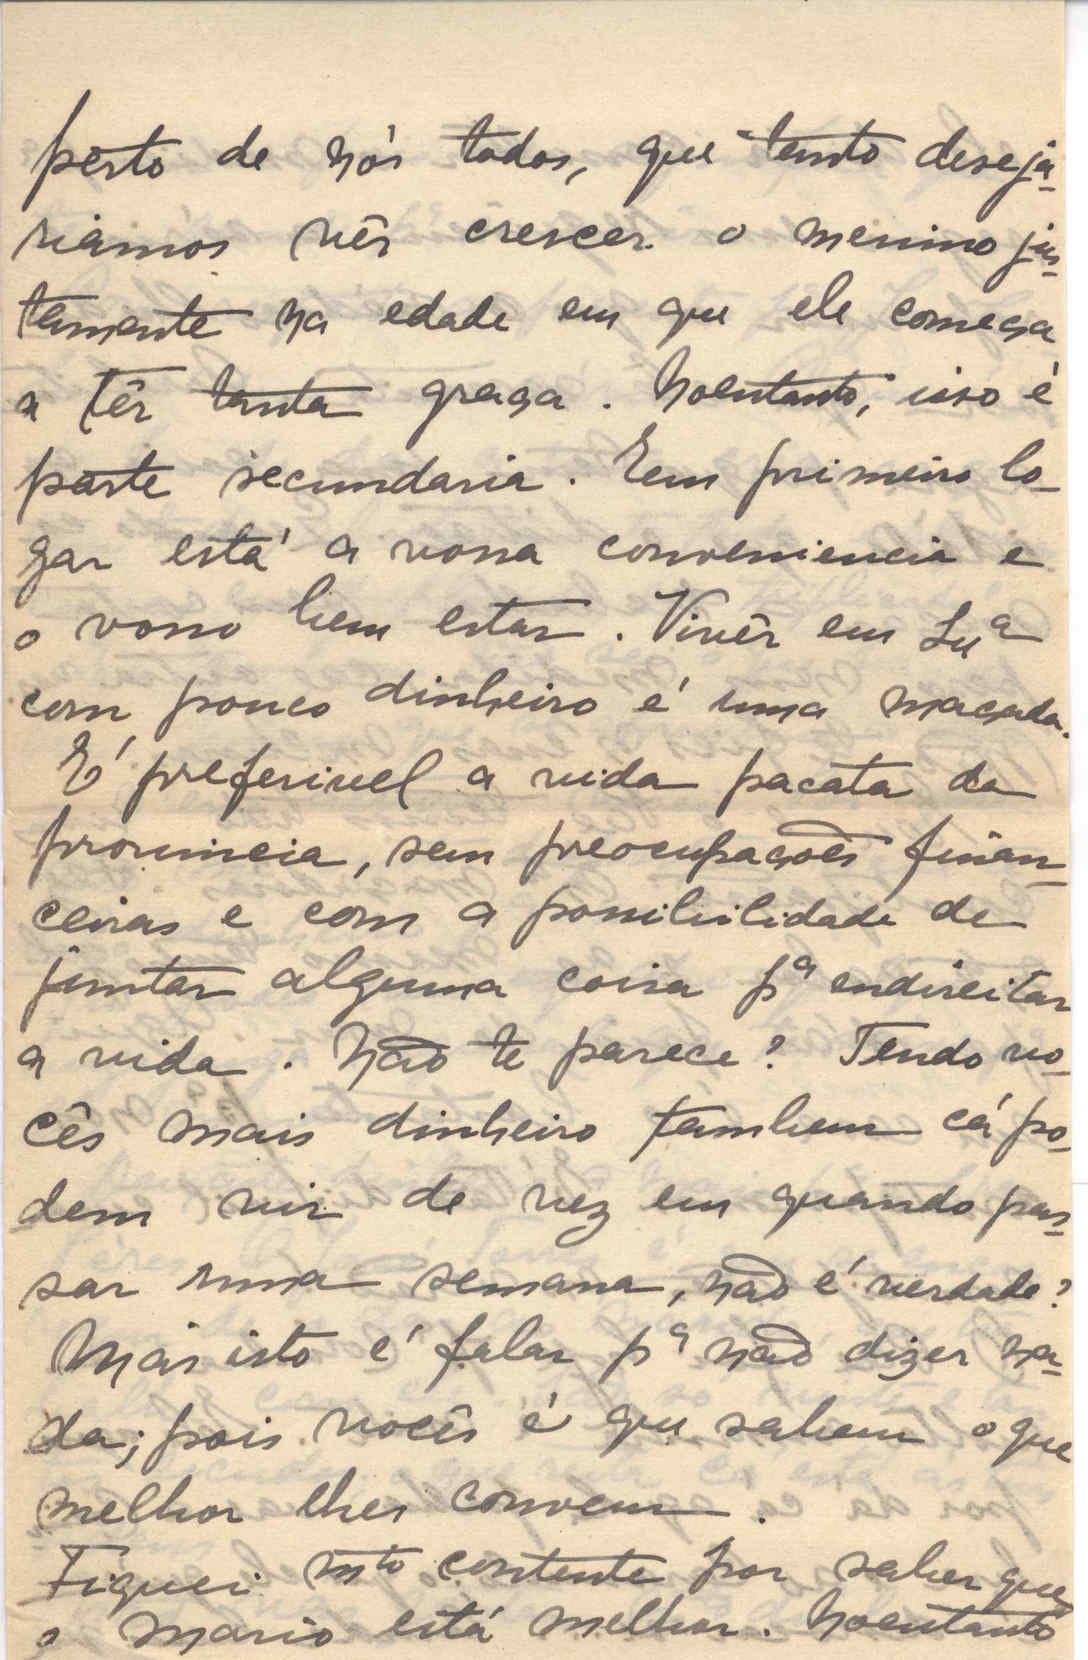 perto de nós todos, que tanto desejá-
riamos vêr crescer o menino jus-
tamente na edade em que ele começa
a têr tanta graça. Noentanto, isso é
parte secundaria. Em primeiro lo-
gar está a vossa conveniencia e
o vosso bem estar. Vivêr em Lxª
com pouco dinheiro é uma maçada.
É preferivel a vida pacata da
provincia, sem preocupações finan-
ceiras e com a possibilidade de
juntar alguma coisa pª endireitar
a vida. Não te parece? Tendo vo-
cês mais dinheiro tambem cá po-
dem vir de vez em quando pas-
sar uma semana, não é verdade?
Mas isto é falar pª não dizer na-
da; pois vocês é que sabem o que
melhor lhes convem.
Fiquei mto contente por saber que
o Mario está melhor. Noentanto